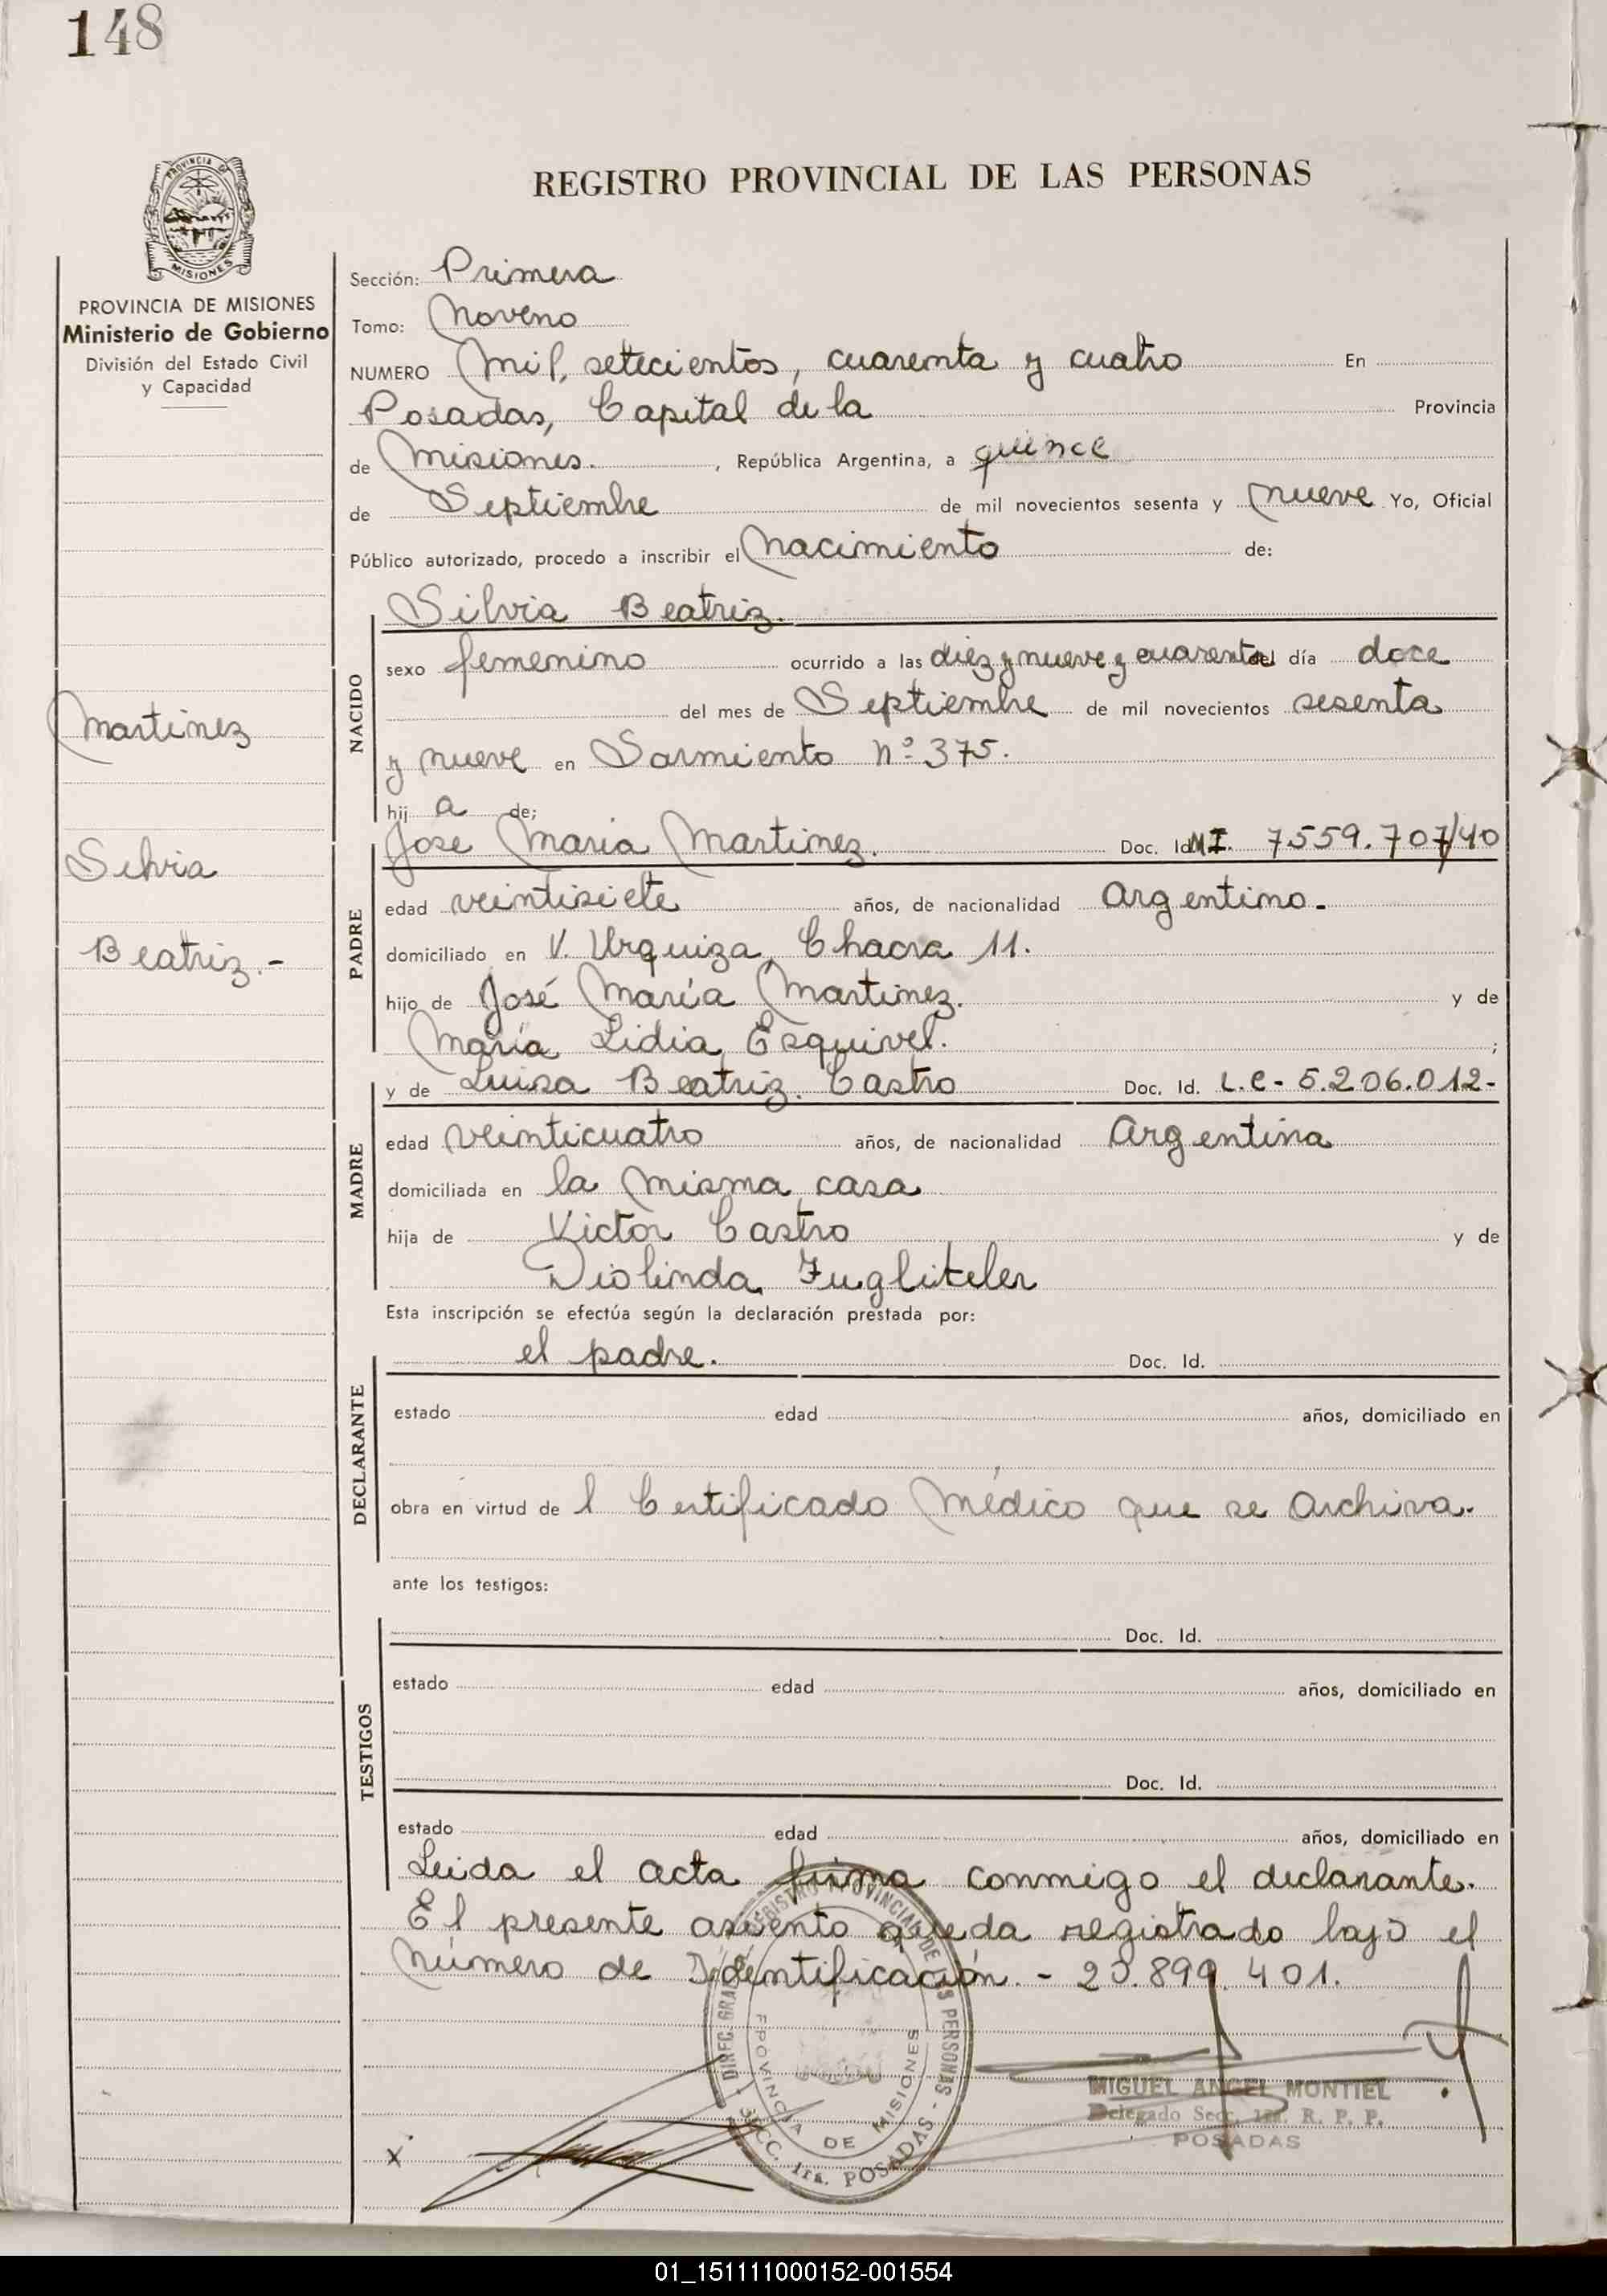 148
REGISTRO PROVINCIAL DE LAS PERSONAS
PROVINCIA DE
MISIONES
PROVINCIA DE MISIONES
Ministerio de Gobierno
División del Estado Civil
y Capacidad
Martinez
Silvia
Beatriz.-
Sección: Primera
Tomo: Noveno
NUMERO Mil, setecientos, cuarenta y cuatro En
Posadas, Capital de la Provincia
de Misiones. , República Argentina, a quince
de Septiembre de mil novecientos sesenta y nueve Yo, Oficial
Público autorizado, procedo a inscribir el Nacimiento de:
NACIDO
Silvia Beatriz.
sexo femenino ocurrido a las diez y nueve y cuarenta del día doce
del mes de Septiembre de mil novecientos sesenta
y nueve en Sarmiento Nº 375.
hij a de;
PADRE
Jose Maria Martinez. Doc. Id. M.I. 7559.707/40
edad veintisiete años, de nacionalidad Argentino.
domiciliado en V. Urquiza, Chacra 11.
hijo de José María Martinez. y de
María Lidia Esquivel. ;
MADRE
y de Luisa Beatriz. Castro Doc. Id. L.C- 5.206.012-
edad veinticuatro años, de nacionalidad Argentina
domiciliada en la misma casa
hija de Victor Castro y de
Diolinda
Esta inscripción se efectúa según la declaración prestada por:
DECLARANTE
el padre. Doc. Id.
estado edad años, domiciliado en
obra en virtud de l Certificado Médico que se Archiva.
ante los testigos:
TESTIGOS
Doc. Id.
estado edad años, domiciliado en
Doc. Id.
estado edad años, domiciliado en
Leida el acta firma conmigo el declarante.
El presente asiento queda registrado bajo el
Número de Identificación. - 20.899.401.
DIREC. GRAL. REGISTRO PROVINCIAL DE LAS PERSONAS - SECC. 1ra. POSADAS -
PROVINCIA DE MISIONES
MIGUEL ANGEL MONTIEL
Delegado Secc. 1ra. R. P. P.
POSADAS
X
01_151111000152-001554